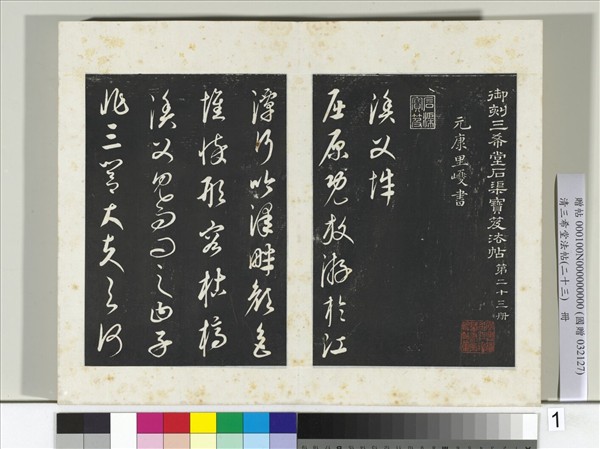 御刻三希堂石渠寶笈法帖 第二十三册
元康里巎書
石渠寶笈
漁父辭
屈原既放游於江
潭行吟澤畔顏色
憔悴形容枯槁
漁父見而問之曰子
非三閭大夫與何
贈帖 000100N000000000 (國贈 032127)
清三希堂法帖(二十三) 冊
1